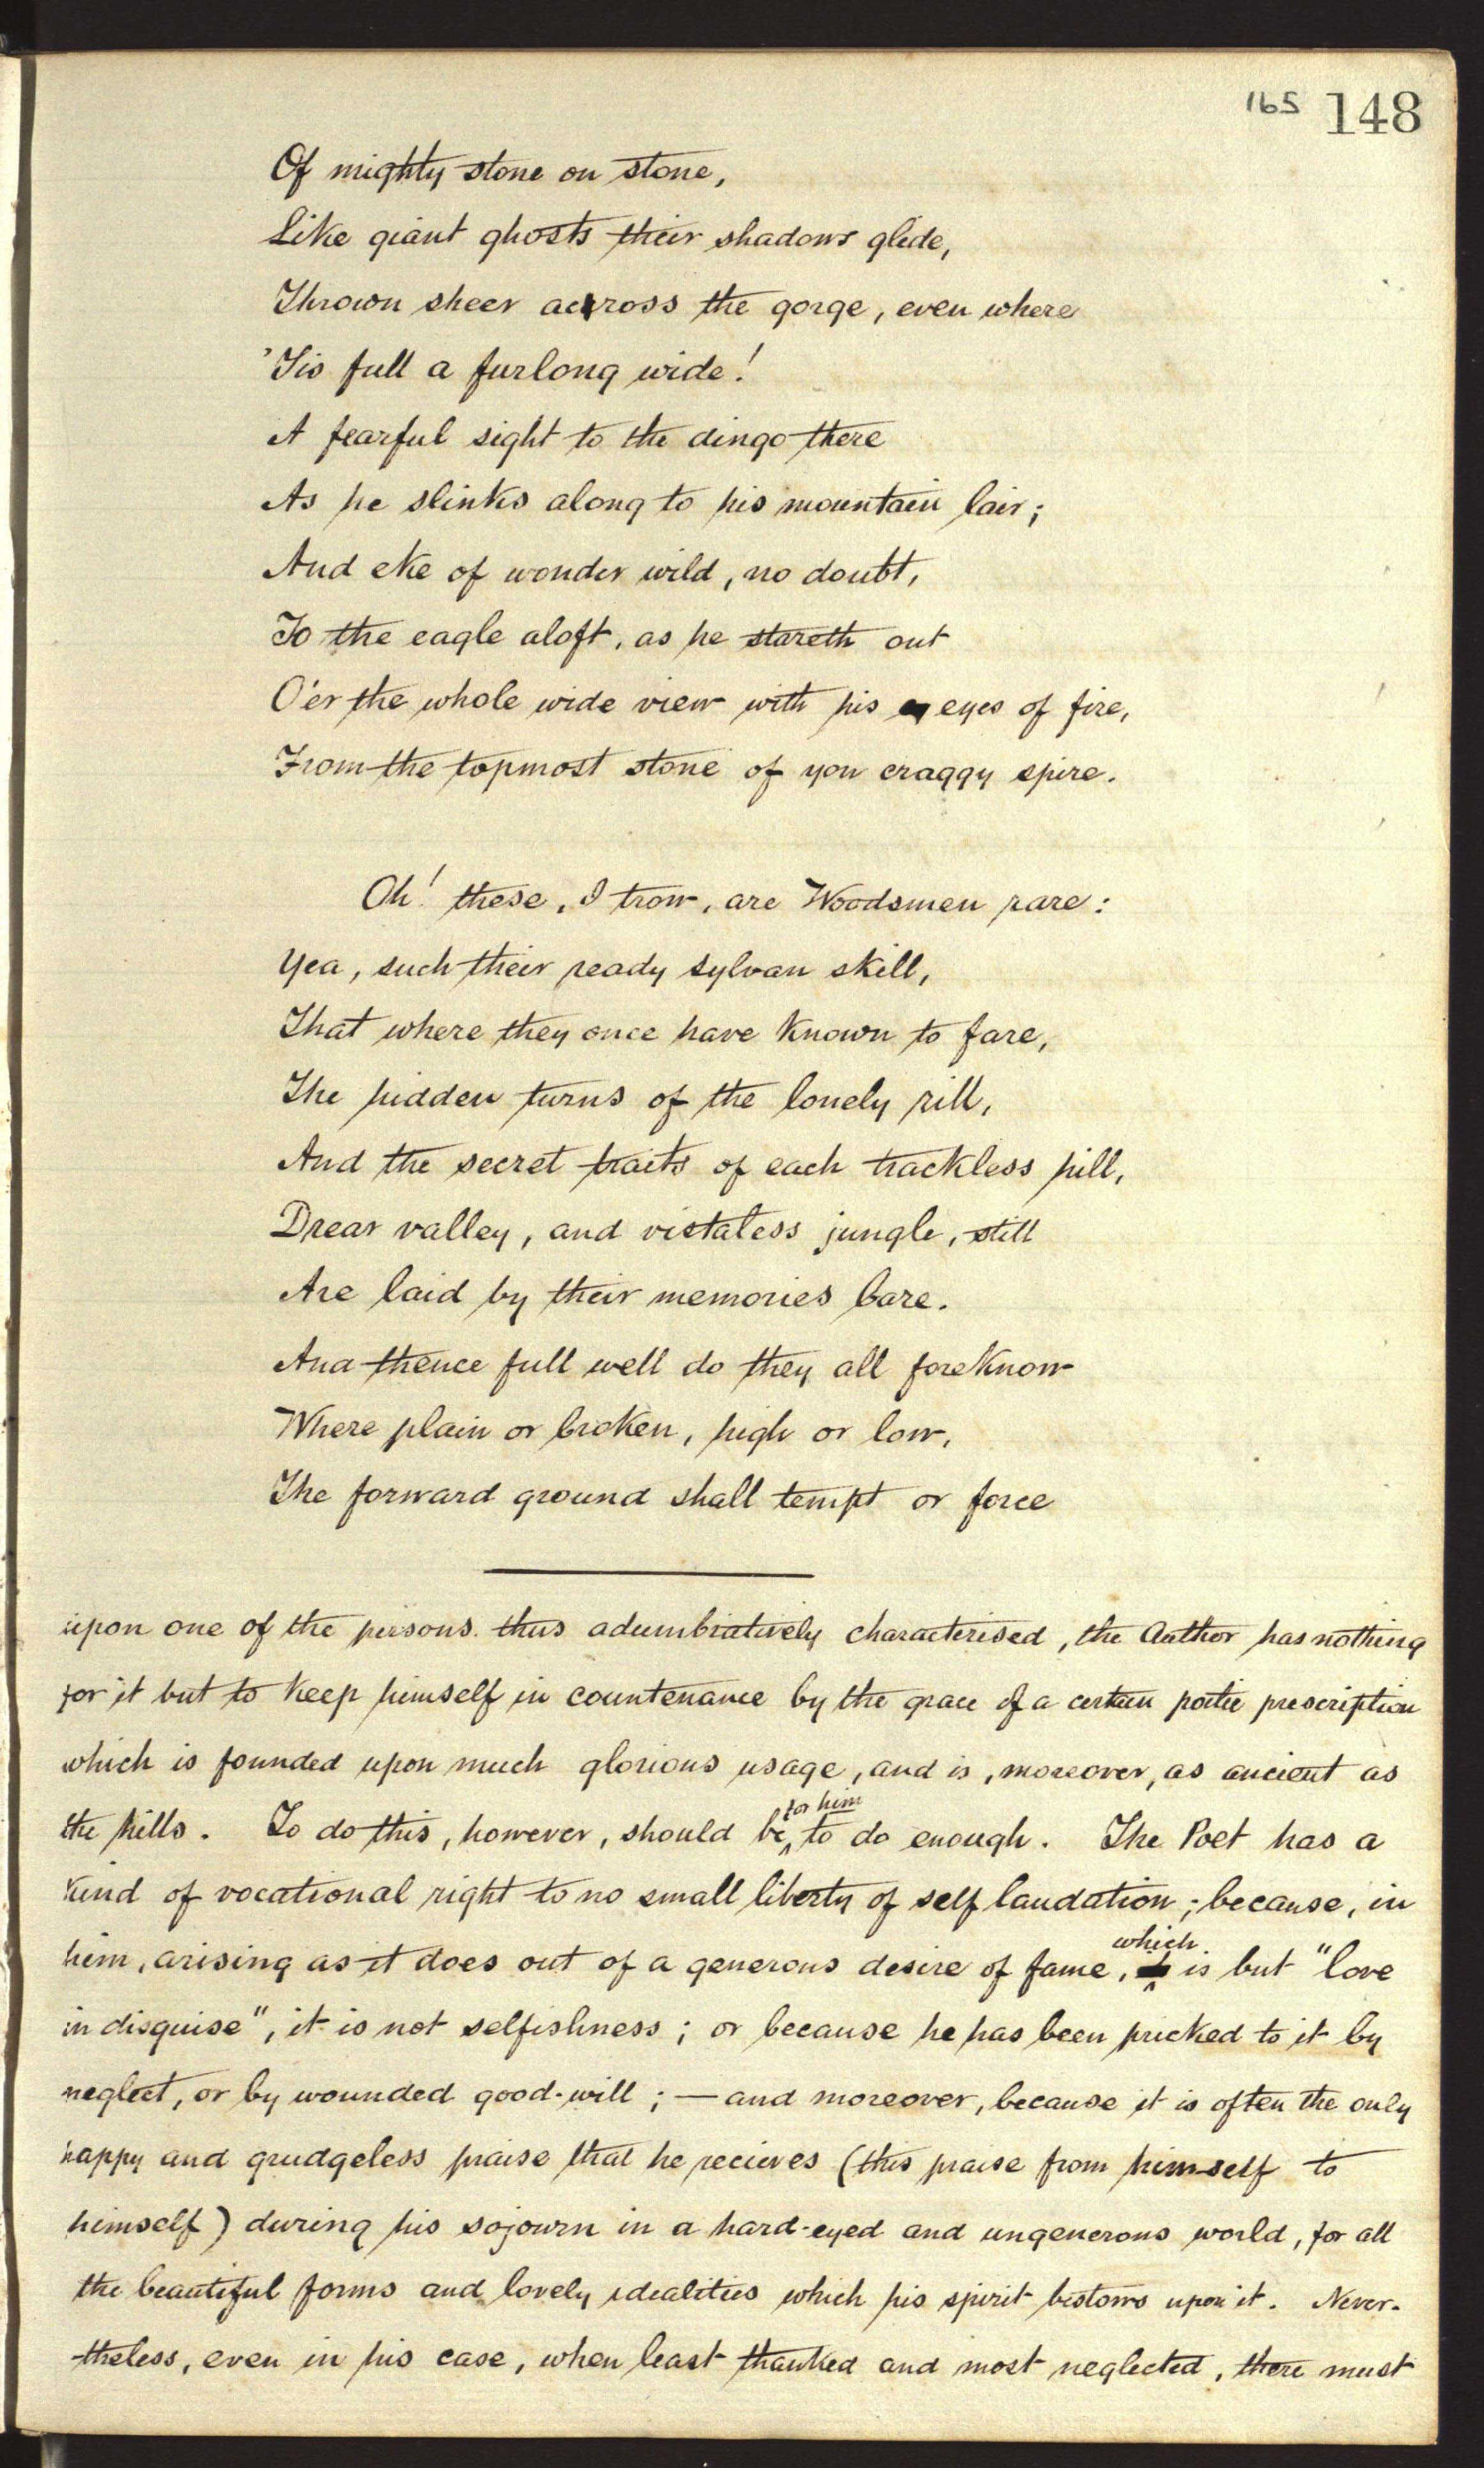 165 148
Of mighty stone on stone,
Like giant ghosts their shadows glide,
Thrown sheer across the gorge, even where
'Tis full a furlong wide!
A fearful sight to the dingo there
As he slinks along to his mountain lair;
And eke of wonder wild, no doubt,
To the eagle aloft, as he stareth out
O'er the whole wide view with his eyes of fire,
From the topmost stone of yon craggy spire.
Oh! these, I trow, are Woodsmen rare:
Yea, such their ready sylvan skill,
That where they once have known to fare,
The hidden turns of the lonely rill,
And the secret traits of each trackless hill,
Drear valley, and vistaless jungle, still
Are laid by their memories bare.
And thence full well do they all foreknow
Where plain or broken, high or low,
The forward ground shall tempt or force
upon one of the persons thus adumbratively characterised, the Author has nothing
for it but to keep himself in countenance by the grace of a certain poetic prescription
which is founded upon much glorious usage, and is, moreover, as ancient as
the hills. To do this, however, should be for him to do enough. The Poet has a
kind of vocational right to no small liberty of self laudation; because, in
him, arising as it does out of a generous desire of fame, which is but "love
in disguise", it is not selfishness; or because he has been pricked to it by
neglect, or by wounded good-will; — and moreover, because it is often the only
happy and grudgeless praise that he recieves (this praise from himself to
himself) during his sojourn in a hard-eyed and ungenerous world, for all
the beautiful forms and lovely idealities which his spirit bestows upon it. Never-
-theless, even in his case, when least thanked and most neglected, there must